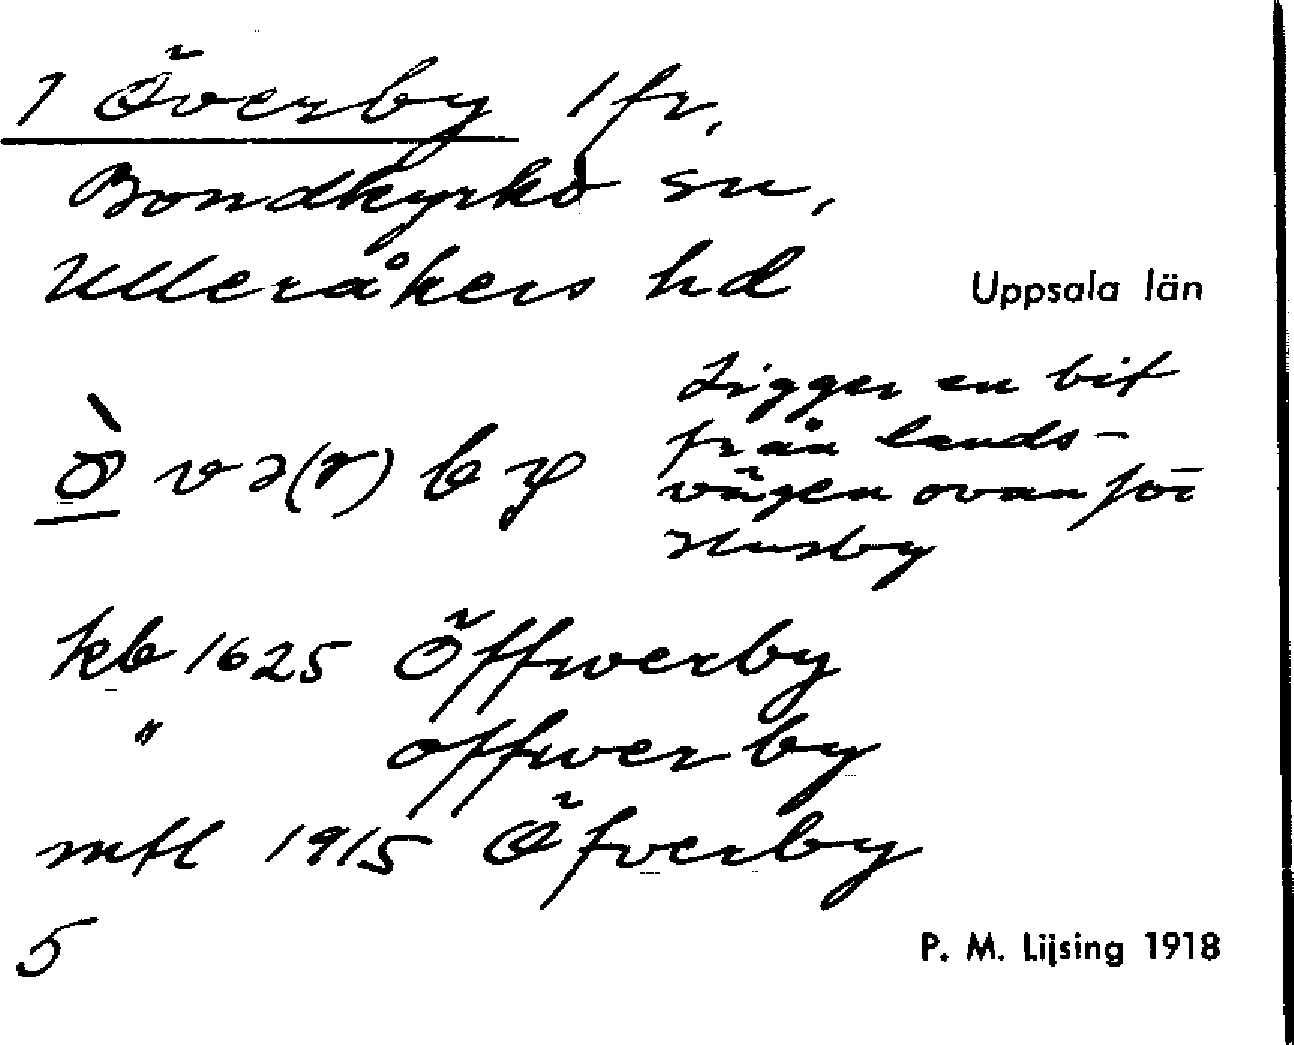 1 Överby 1 fr,
Bondkyrko sn,
Ulleråkers hd
Uppsala län
ö̀ v ə(r) b y
Ligger en bit
från lands-
vägen ovanför
Husby
kb 1625 Öffwerby
" offwerby
mtl 1915 Öfverby
5
P. M. Lijsing 1918